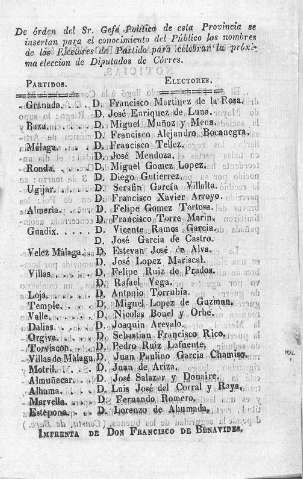 De órden del Sr. Gefe Político de esta Provincia se
insertan para el conocimiento del Público los nombres
de los Electores de Partido para celebrar la próxi-
ma eleccion de Diputados de Córtes.
PARTIDOS. ELECTORES.
Granada. D. Francisco Martinez de la Rosa.
D. José Enriquez de Luna.
Baza. D. Miguel Muñoz y Meca.
D. Francisco Alejandro Bocanegra.
Málaga. D. Francisco Tellez.
D. José Mendoza.
Ronda. D. Miguel Gomez Lopez.
D. Diego Gutierrez.
Ugijar. D. Serafin García Villalta.
D. Francisco Xavier Arroyo.
Almería. D. Felipe Gomez Tortosa.
D. Francisco Torre Marin.
Guadix. D. Vicente Ramos García.
D. José García de Castro.
Velez Málaga. D. Estevan José de Alva.
D. José Lopez Mariscal.
Villas. D. Felipe Ruiz de Prados.
D. Rafael Vega.
Loja. D. Antonio Torrubia.
Temple. D. Miguel Lopez de Guzman.
Valle. D. Nicolas Bouel y Orbe.
Dalias. D. Joaquin Arevalo.
Orgiva. D. Sebastian Francisco Rico.
Torviscon. D. Pedro Ruiz Lafuente.
Villas de Málaga. D. Juan Paulino García Chamiso.
Motril. D. Juan de Ariza.
Almuñecar. D. José Salazar y Domaire.
Alhama. D. Luis José del Corral y Raya.
Marvella. D. Fernando Romero.
Estepona. D. Lorenzo de Ahumada.
IMPRENTA DE DON FRANCISCO DE BENAVIDES.